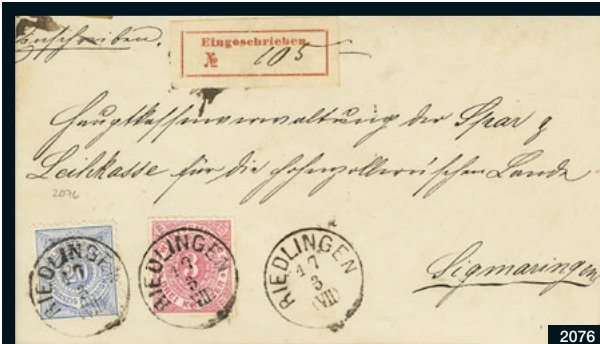 Einschreiben.
Eingeschrieben.
№ 105
Hauptkassenverwaltung der Spar &
Leihkasse für die hohenzollern'schen Lande
2076
Sigmaringen
RIEDLINGEN
RIEDLINGEN
RIEDLINGEN
17
3
(VII)
2076